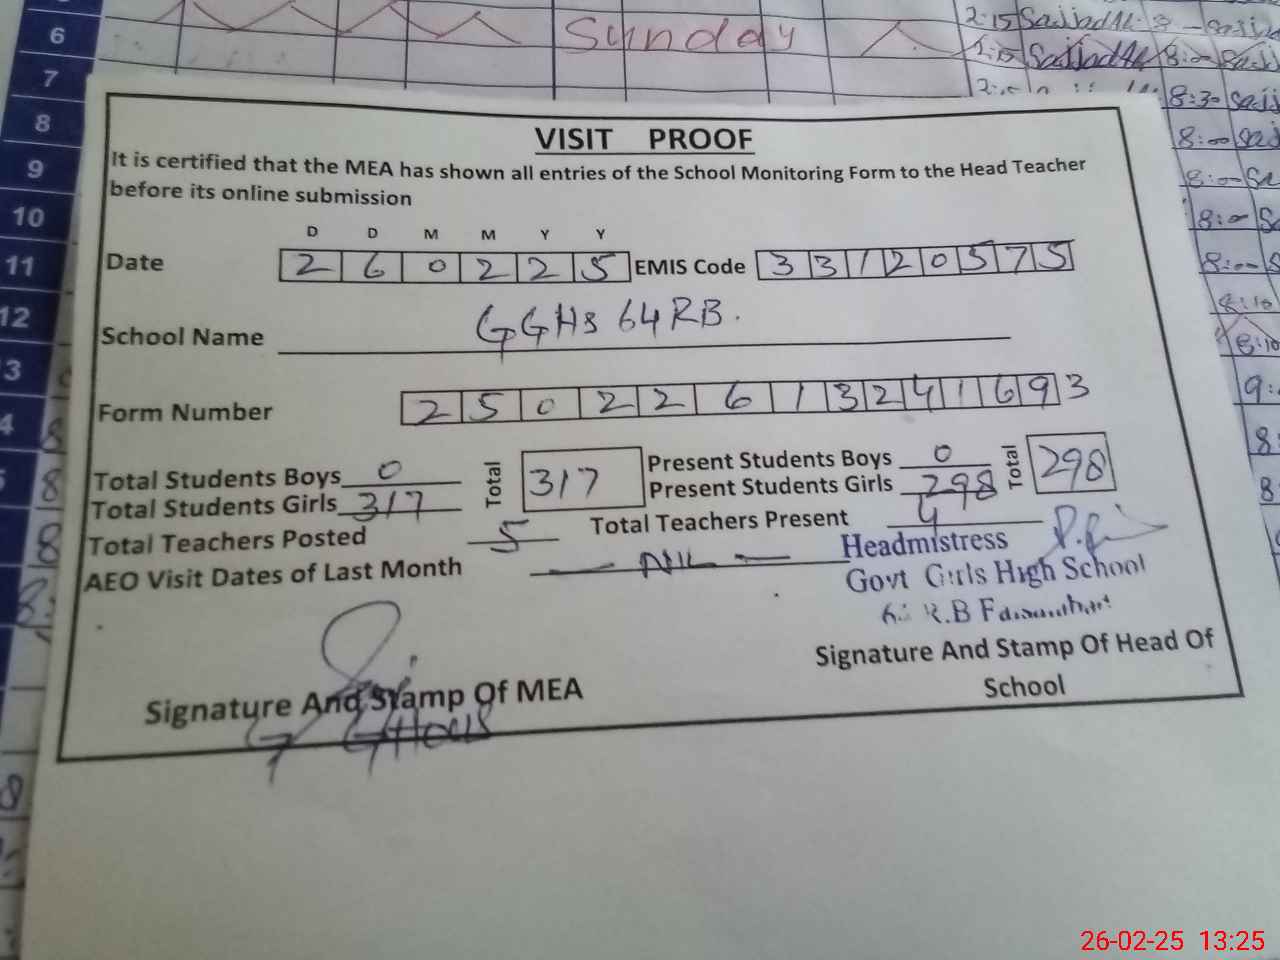 6
7
8
9
10
11
12
Sunday
2:15 Sajjad
8:30
8:00
8:00
8:00
8:00
8:10
8:10
VISIT PROOF
It is certified that the MEA has shown all entries of the School Monitoring Form to the Head Teacher
before its online submission
D D M M Y Y
Date 2 6 0 2 2 5 EMIS Code 3 3 1 2 0 5 7 5
School Name GGHS 64 RB.
Form Number 2 5 0 2 2 6 1 3 2 4 1 6 9 3
Total Students Boys 0 Total 317 Present Students Boys 0 Total 298
Total Students Girls 317 Present Students Girls 298
Total Teachers Posted 5 Total Teachers Present 4
AEO Visit Dates of Last Month — Nil —
Headmistress
Govt Girls High School
R.B
Signature And Stamp Of MEA
Signature And Stamp Of Head Of
School
26-02-25 13:25